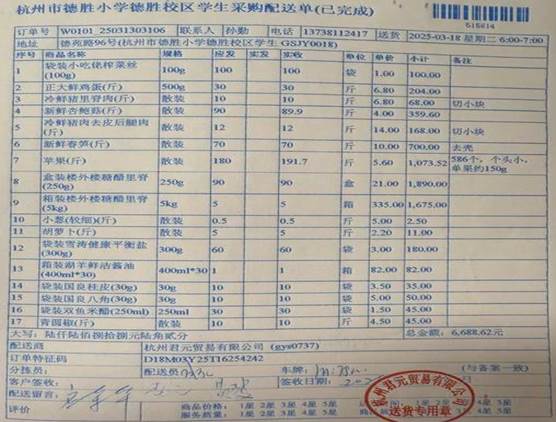 杭州市德胜小学德胜校区学生采购配送单(已完成)
515614
订单号 W0101_25031303106 联系人 孙勤 电话 13738112417 送货 2025-03-18 星期二 6:00-7:00
地址 德苑路96号(杭州市德胜小学德胜校区学生 GSJY0018)
序号 商品名称 规格 应发 实发 实收 单位 单价 小计 备注
1 袋装小吃佬榨菜丝(100g) 100g 100 100 袋 1.00 100.00
2 正大鲜鸡蛋(斤) 500g 30 30 斤 6.80 204.00
3 冷鲜猪里脊肉(斤) 散装 10 10 斤 6.80 68.00 切小块
4 新鲜杏鲍菇(斤) 散装 90 89.9 斤 4.00 359.60
5 冷鲜猪肉去皮后腿肉(斤) 散装 12 12 斤 14.00 168.00 切小块
6 新鲜春笋(斤) 散装 70 70 斤 10.00 700.00 去壳
7 苹果(斤) 散装 180 191.7 斤 5.60 1,073.52 586个，个头小，单果约150g
8 盒装楼外楼糖醋里脊(250g) 250g 90 90 盒 21.00 1,890.00
9 箱装楼外楼糖醋里脊(5kg) 5kg 5 5 箱 335.00 1,675.00
10 小葱(较细)(斤) 散装 0.5 0.5 斤 5.00 2.50
11 胡萝卜(斤) 散装 5 5 斤 2.20 11.00
12 袋装雪涛健康平衡盐(300g) 300g 60 60 袋 3.00 180.00
13 箱装湖羊鲜活酱油(400ml*30) 400ml*30 1 1 箱 82.00 82.00
14 袋装国良桂皮(30g) 30g 10 10 袋 3.50 35.00
15 袋装国良八角(30g) 30g 10 10 袋 5.00 50.00
16 袋装双鱼米醋(250ml) 250ml 30 30 袋 1.50 45.00
17 青圆椒(斤) 散装 10 10 斤 4.50 45.00
大写：陆仟陆佰捌拾捌元陆角贰分 总金额：6,688.62元
配送商 杭州君元贸易有限公司 (gys0737)
订单特征码 D18M03Y25T16254242
分拣员： 配送员： 车牌： (与备案一致)
客户签收： 签收日期：
配送留言：
评价 商品价格： 1星 2星 3星 4星 5星
服务质量： 1星 2星 3星 4星 5星
杭州君元贸易有限公司
送货专用章